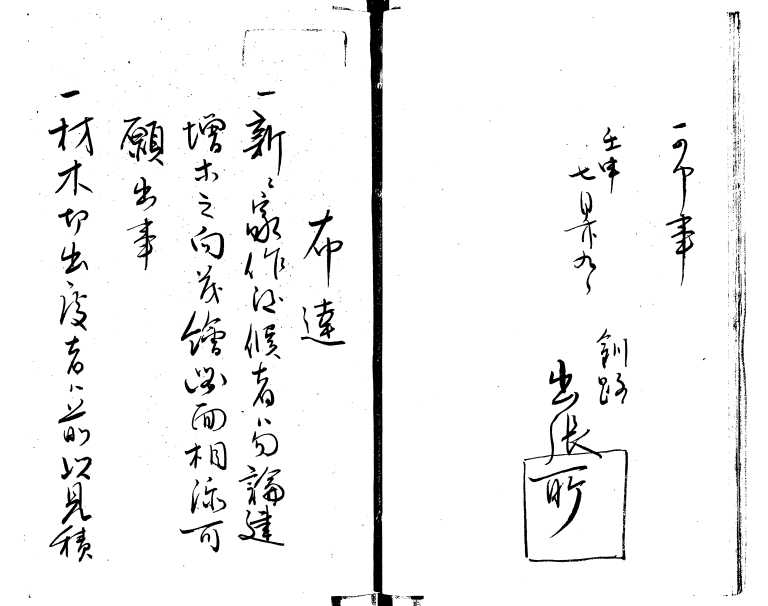 可申事
壬申
七月
釧路
出張所
布達
一新〻家作致候者ハ勿論建
増等之向茂繪図面相添可
願出事
一材木切出度者ハ前以見積